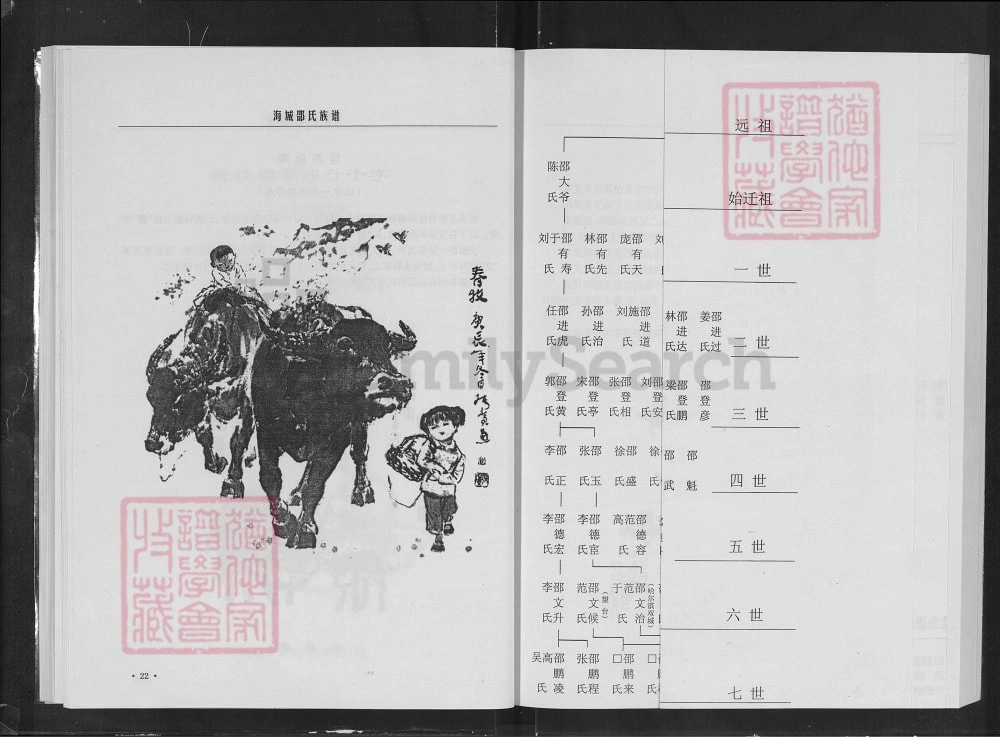 海城邵氏族谱
春牧 庚辰年冬日
· 22 ·
FamilySearch
猶他家譜學會收藏
猶他家譜學會收藏
远祖
陈氏 邵大爷
始迁祖
刘于氏 邵有寿 林氏 邵有先 庞氏 邵有天 刘
一世
任氏 邵进虎 孙氏 邵进治 刘施氏 邵进道 林氏 邵进达 姜氏 邵进过
二世
郭氏 邵登黄 宋氏 邵登亭 张氏 邵登相 刘氏 邵登安 梁氏 邵登鹏 邵登彦
三世
李氏 邵正 张氏 邵玉 徐氏 邵盛 徐氏 邵武 邵魁
四世
李氏 邵德宏 李氏 邵德宦 高范氏 邵德容
五世
李氏 邵文升 范氏 邵文候 (望台) 于范氏 邵文治 (哈尔滨双城)
六世
吴高氏 邵鹏凌 张氏 邵鹏程 □氏 邵鹏来 □氏
七世